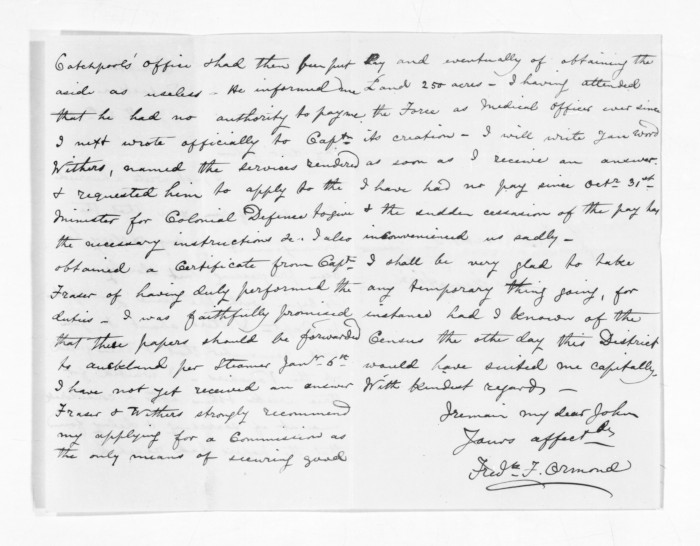 Catchpool's Office & had then been put
aside as useless - He informed me
that he had no authority to pay me
I next wrote officially to Captn
Withers, named the services rendered
& requested him to apply to the
Minister for Colonial Defence to give
the necessary instructions &c. I also
obtained a Certificate from Captn
Fraser of having duly performed the
duties - I was faithfully promised
that these papers should be forwarded
to Auckland per Steamer Jany 6th
I have not yet received an answer
Fraser & Withers strongly recommend
my applying for a Commission as
the only means of securing good
Pay and eventually of obtaining the
Land 250 acres - I having attended
the Force as Medical Officer ever since
its creation - I will write you word
as soon as I receive an answer.
I have had no pay since Octr 31st
& the sudden cessasion of the pay has
inconvenienced us sadly -
I shall be very glad to take
any temporary thing going, for
instance had I known of the
Census the other day this District
would have suited me capitally.
With kindest regards -
I remain my dear John
Yours affectly
Fredk F. Ormond